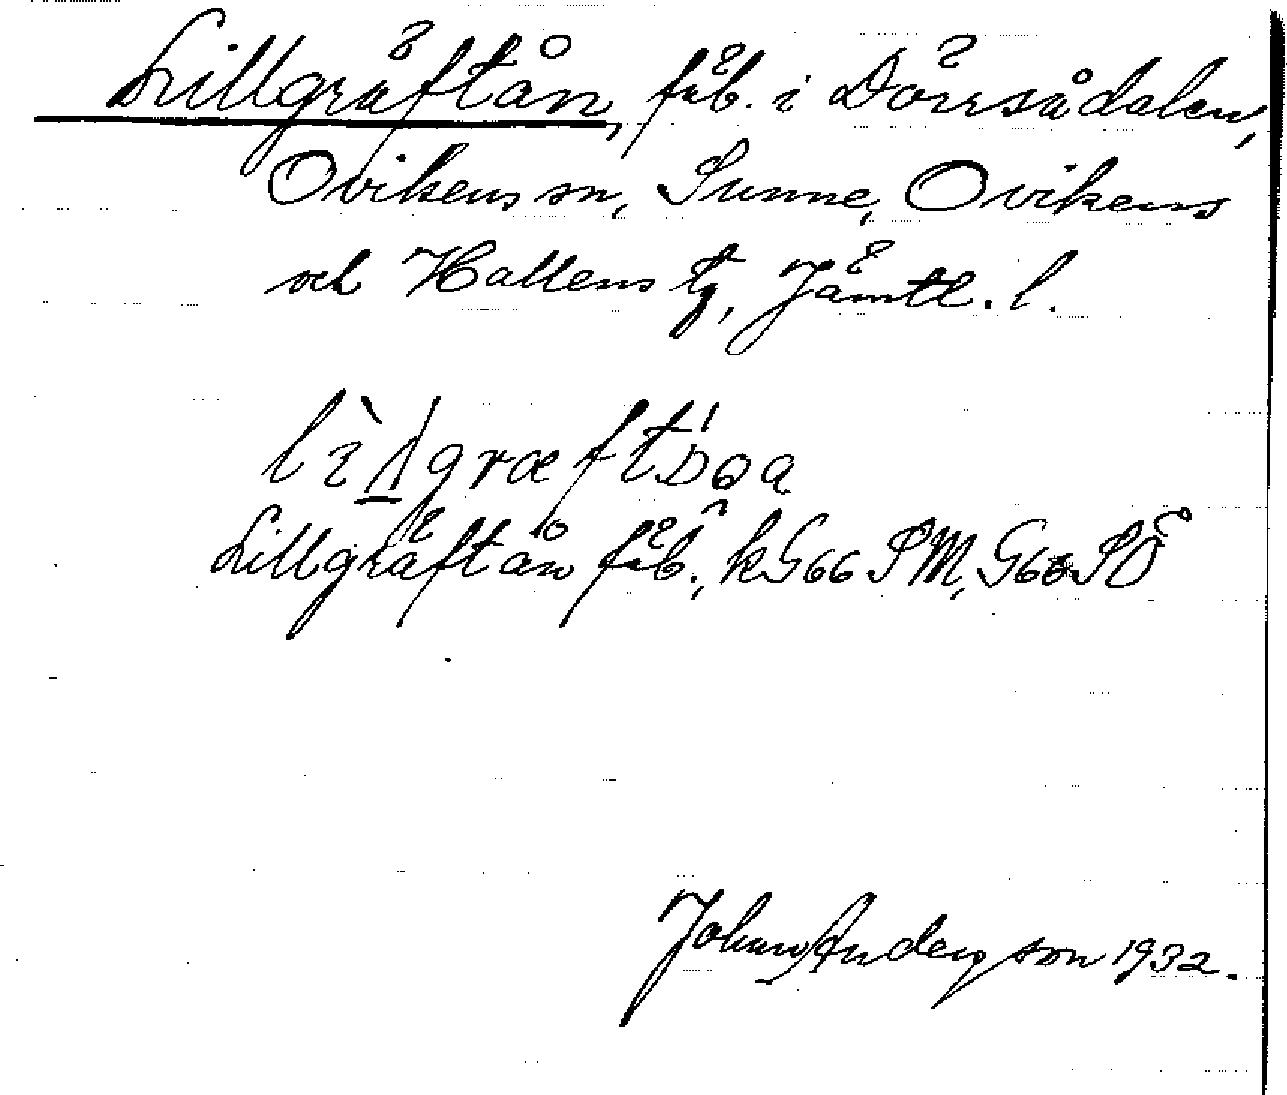 Lillgräftån, fäb. i Dörrsådalen,
Ovikens sn, Sunne, Ovikens
och Hallens tg, Jämtl. l.
Lillgräftån fäb., kG66 SM, G66 SÖ
Johan Anderson 1932.